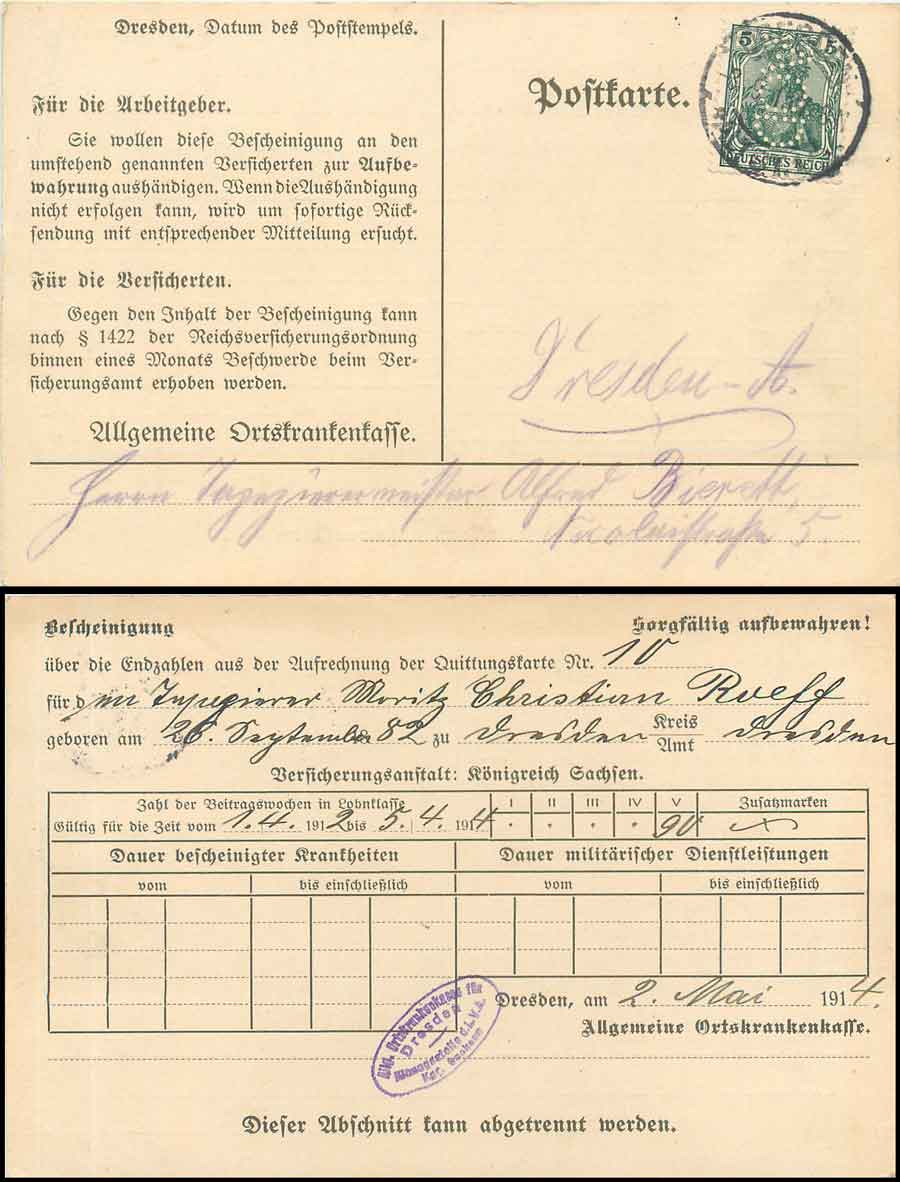 Dresden, Datum des Poststempels.
Für die Arbeitgeber.
Sie wollen diese Bescheinigung an den
umstehend genannten Versicherten zur Aufbe-
wahrung aushändigen. Wenn die Aushändigung
nicht erfolgen kann, wird um sofortige Rück-
sendung mit entsprechender Mitteilung ersucht.
Für die Versicherten.
Gegen den Inhalt der Bescheinigung kann
nach § 1422 der Reichsversicherungsordnung
binnen eines Monats Beschwerde beim Ver-
sicherungsamt erhoben werden.
Allgemeine Ortskrankenkasse.
Postkarte.
5 5
DEUTSCHES REICH
Dresden-A.
Herrn Tapezierermeister Alfred
Nicolaistraße 5.
Bescheinigung Sorgfältig aufbewahren!
über die Endzahlen aus der Aufrechnung der Quittungskarte Nr. 10
für den Tapezierer Moritz Christian
geboren am 26. September 82 zu Dresden Kreis Amt Dresden
Versicherungsanstalt: Königreich Sachsen.
Zahl der Beitragswochen in Lohnklasse I II III IV V Zusatzmarken
Gültig für die Zeit vom 1. 4. 1912 bis 5. 4. 1914 . . . . 90
Dauer bescheinigter Krankheiten Dauer militärischer Dienstleistungen
vom bis einschließlich vom bis einschließlich
Dresden, am 2. Mai 1914.
Allgemeine Ortskrankenkasse.
Allg. Ortskrankenkasse für
Dresden
d. L.V.A.
Kgr. Sachsen
Dieser Abschnitt kann abgetrennt werden.